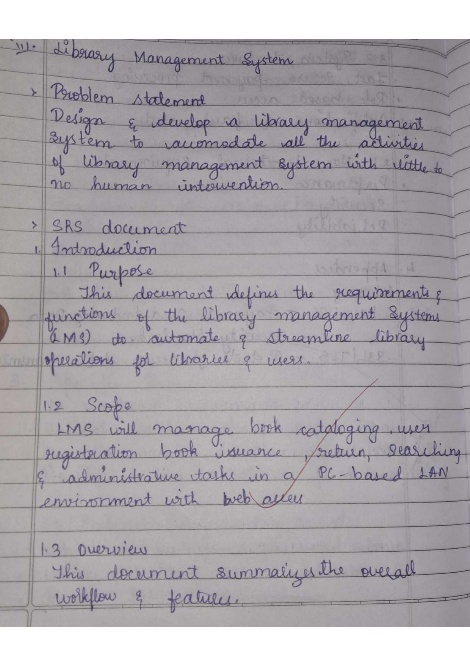 III. Library Management System
> Problem statement
Design & develop a library management
system to auomodate all the activities
of library management system with little to
no human intervention.
> SRS document
1. Introduction
1.1 Purpose
This document defines the requirements &
functions of the library management systems
(LMS) to automate & streamline library
operations for libraries & users.
1.2 Scope
LMS will manage book cataloging, user
registeration book issuance, return, searching
& administrative tasks in a PC-based LAN
environment with web access
1.3 Overview
This document summarizes the overall
workflow & features.